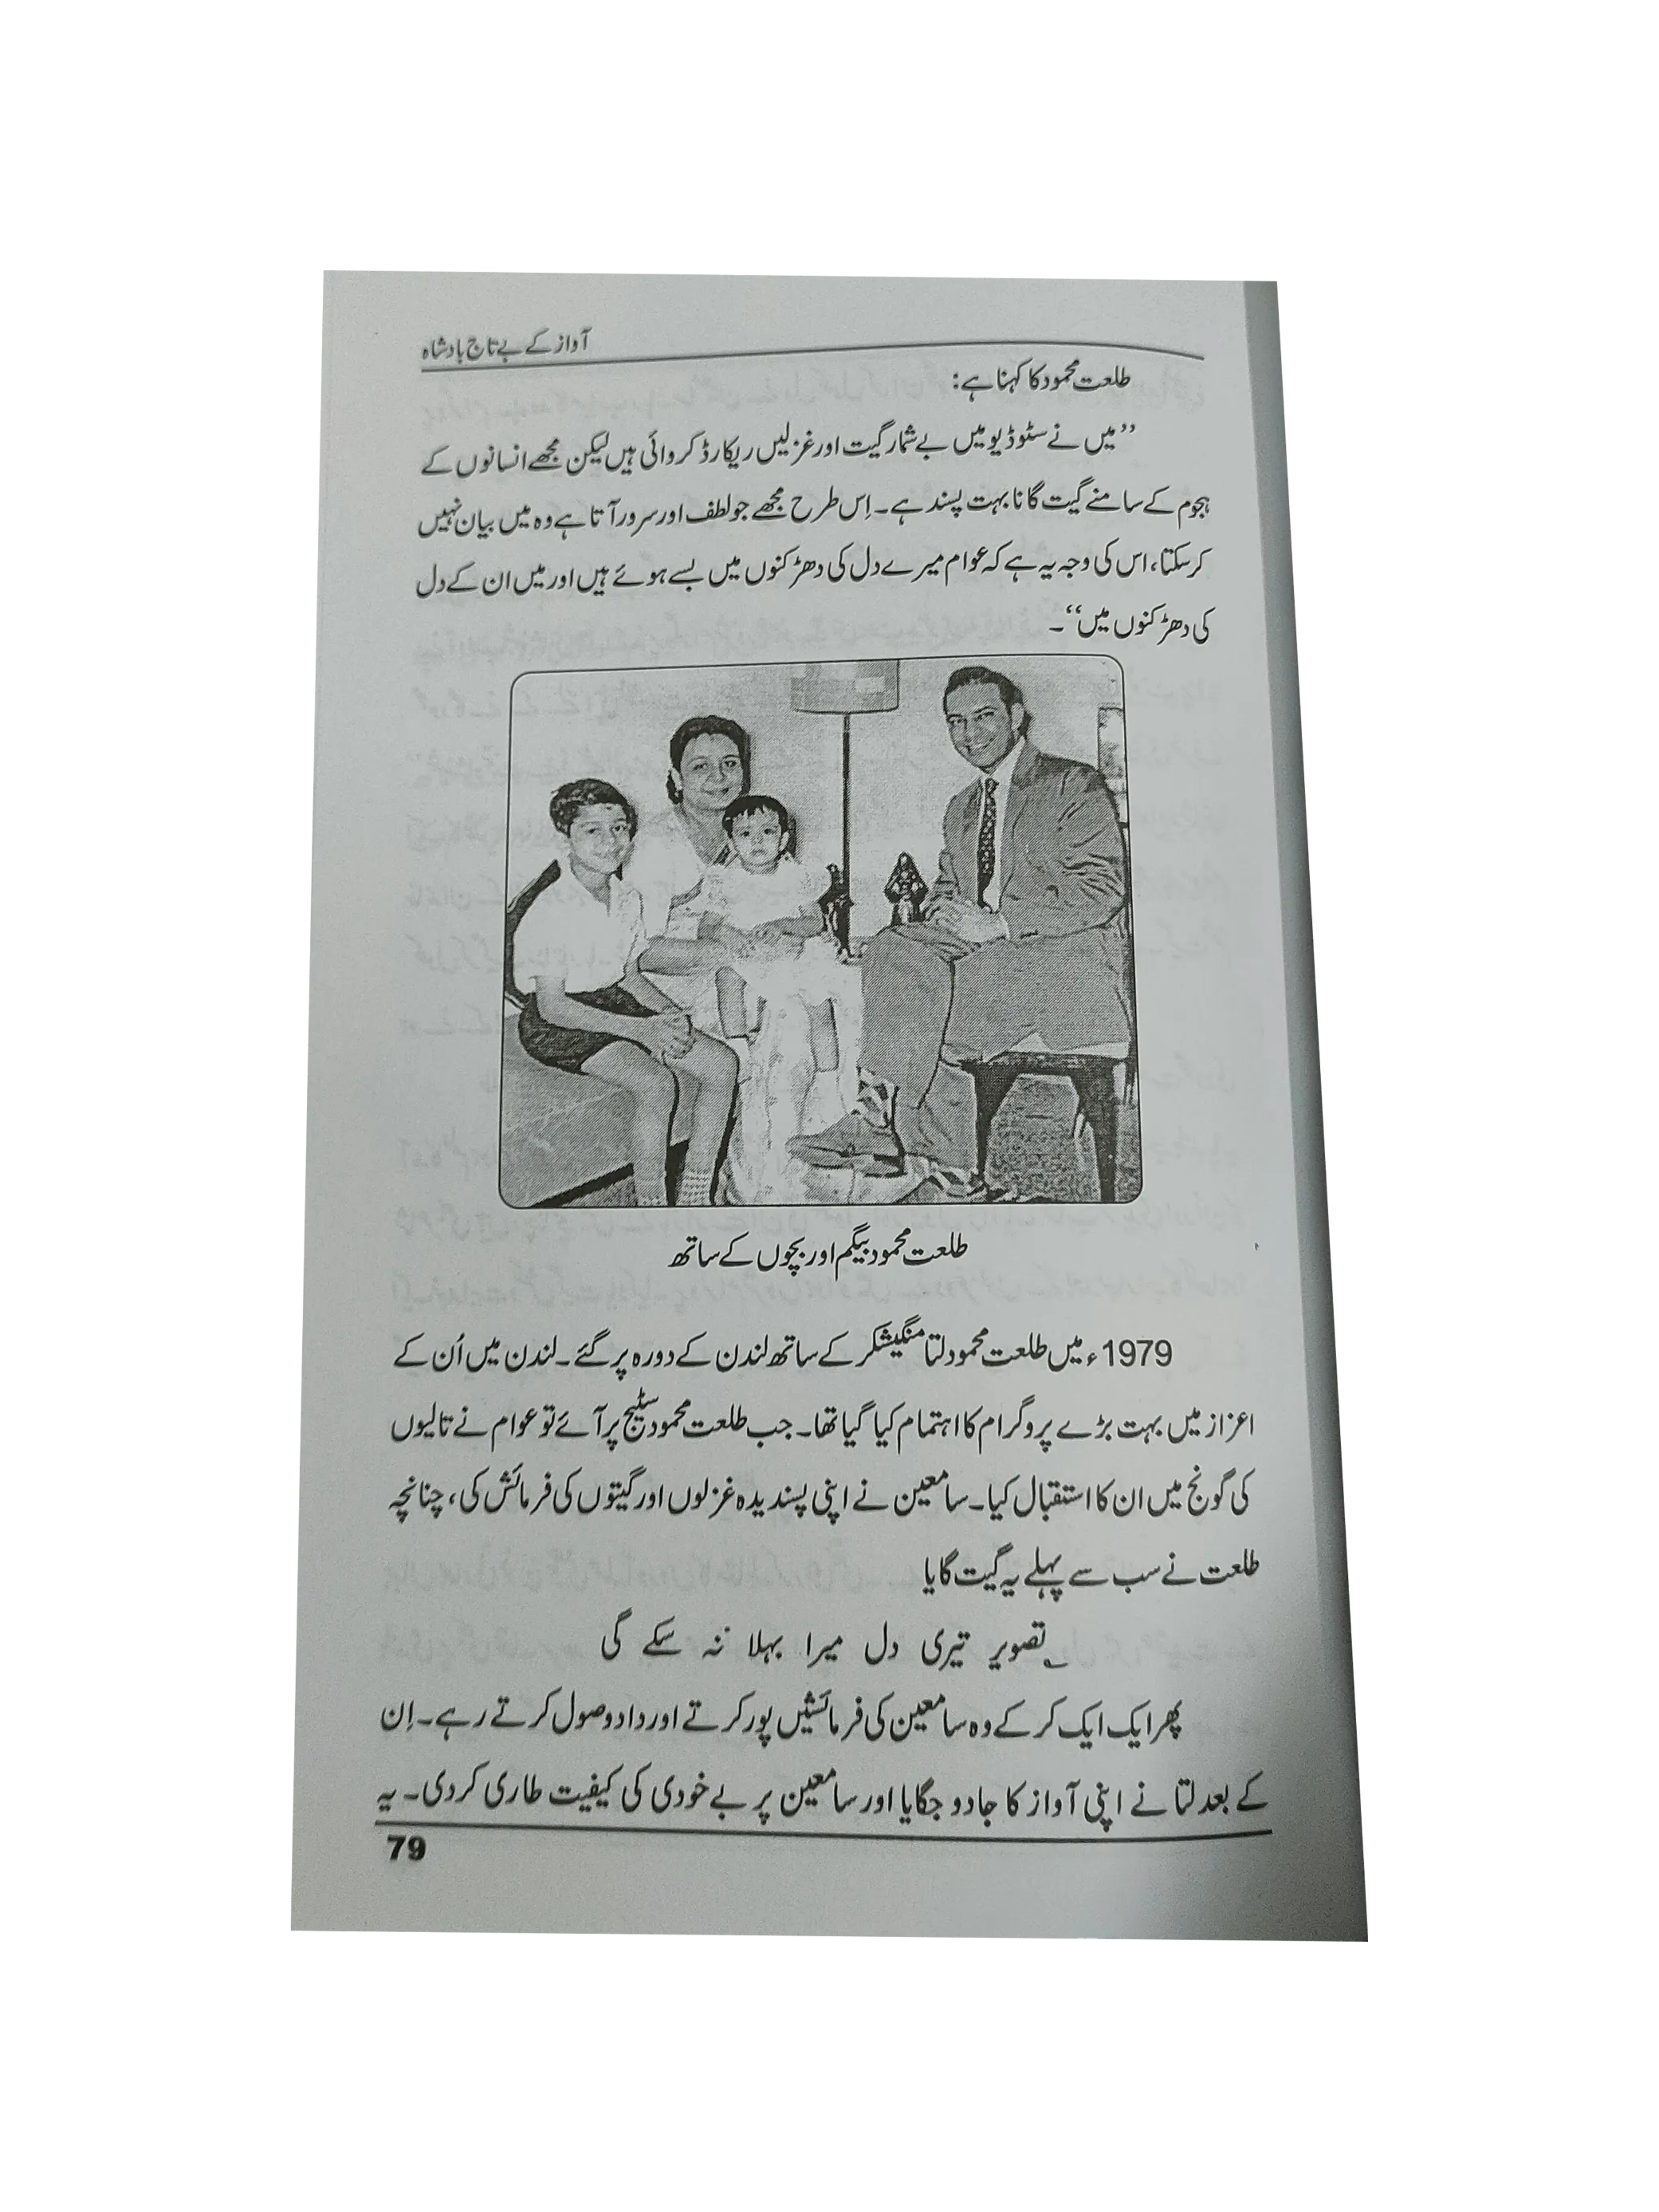 آواز کے بے تاج بادشاہ
طلعت محمود کا کہنا ہے:
”میں نے سٹوڈیو میں بے شمار گیت اور غزلیں ریکارڈ کروائی ہیں لیکن مجھے انسانوں کے
ہجوم کے سامنے گیت گانا بہت پسند ہے۔ اِس طرح مجھے جو لطف اور سرور آتا ہے وہ میں بیان نہیں
کرسکتا، اس کی وجہ یہ ہے کہ عوام میرے دل کی دھڑکنوں میں بسے ہوئے ہیں اور میں ان کے دل
کی دھڑکنوں میں“۔
طلعت محمود بیگم اور بچوں کے ساتھ
1979ء میں طلعت محمود لتا منگیشکر کے ساتھ لندن کے دورہ پر گئے۔ لندن میں اُن کے
اعزاز میں بہت بڑے پروگرام کا اہتمام کیا گیا تھا۔ جب طلعت محمود سٹیج پر آئے تو عوام نے تالیوں
کی گونج میں ان کا استقبال کیا۔ سامعین نے اپنی پسندیدہ غزلوں اور گیتوں کی فرمائش کی، چنانچہ
طلعت نے سب سے پہلے یہ گیت گایا
؎ تصویر تیری دل میرا بہلا نہ سکے گی
پھر ایک ایک کر کے وہ سامعین کی فرمائشیں پور کرتے اور داد وصول کرتے رہے۔ اِن
کے بعد لتا نے اپنی آواز کا جادو جگایا اور سامعین پر بے خودی کی کیفیت طاری کردی۔ یہ
79